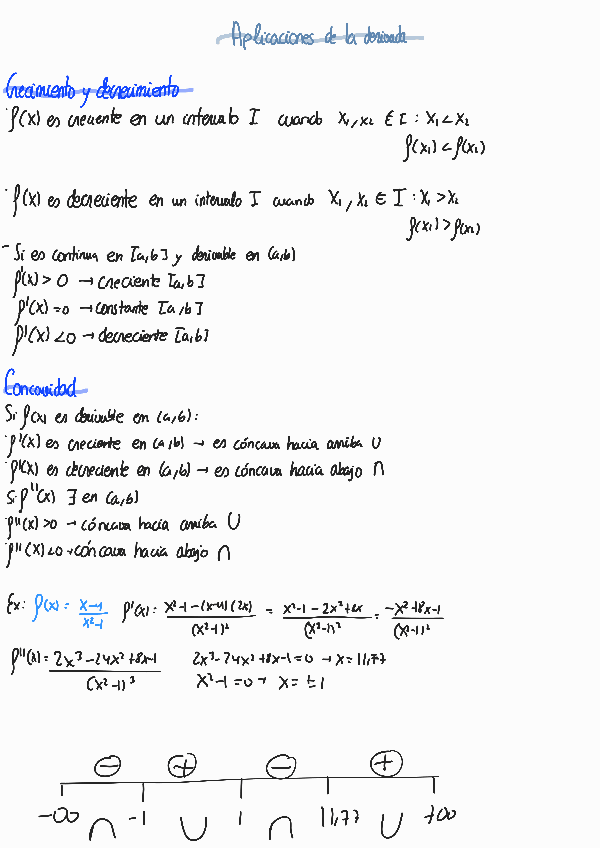 Aplicaciones de la derivada
Crecimiento y decrecimiento
· f(x) es creciente en un intervalo I cuando x₁, x₂ ∈ I : x₁ < x₂
f(x₁) < f(x₂)
· f(x) es decreciente en un intervalo I cuando x₁, x₂ ∈ I : x₁ > x₂
f(x₁) > f(x₂)
- Si es continua en [a,b] y derivable en (a,b)
f'(x) > 0 → creciente [a,b]
f'(x) = 0 → constante [a,b]
f'(x) < 0 → decreciente [a,b]
Concavidad
Si f(x) es derivable en (a,b):
f'(x) es creciente en (a,b) → es cóncava hacia arriba ∪
f'(x) es decreciente en (a,b) → es cóncava hacia abajo ∩
Si f''(x) ∃ en (a,b)
f''(x) > 0 → cóncava hacia arriba ∪
f''(x) < 0 → cóncava hacia abajo ∩
Ex: f(x) = (x-4)/(x²-1) f'(x) = (x²-1-(x-4)(2x))/(x²-1)² = (x²-1-2x²+8x)/(x²-1)² = (-x²+8x-1)/(x²-1)²
f''(x) = (2x³-24x²+8x-1)/(x²-1)³ 2x³-24x²+8x-1=0 → x=11,77
x²-1=0 → x=±1
⊖ ⊕ ⊖ ⊕
-∞ -1 1 11,77 +∞
∩ ∪ ∩ ∪